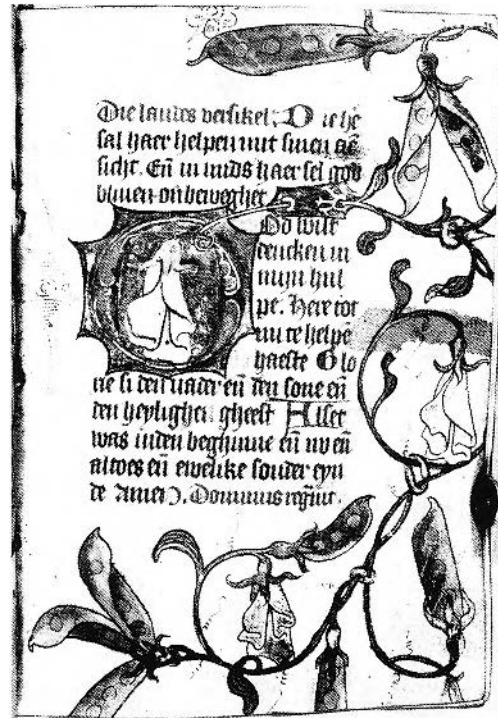 Die laudes versikel. Die he
sal haer helpen mit sinen aē
sicht. Eñ in mids haer sel god
bliuen onbeweghet
God wilt
dencken in
mijn hul
pe. Here tot
mi te helpē
haeste Glo
rie si den vader eñ den sone eñ
den heylighen gheest Alset
was inden beghinne eñ nv eñ
altoes eñ ewelike sonder eyn
de Amen. Dominus regnav̄.